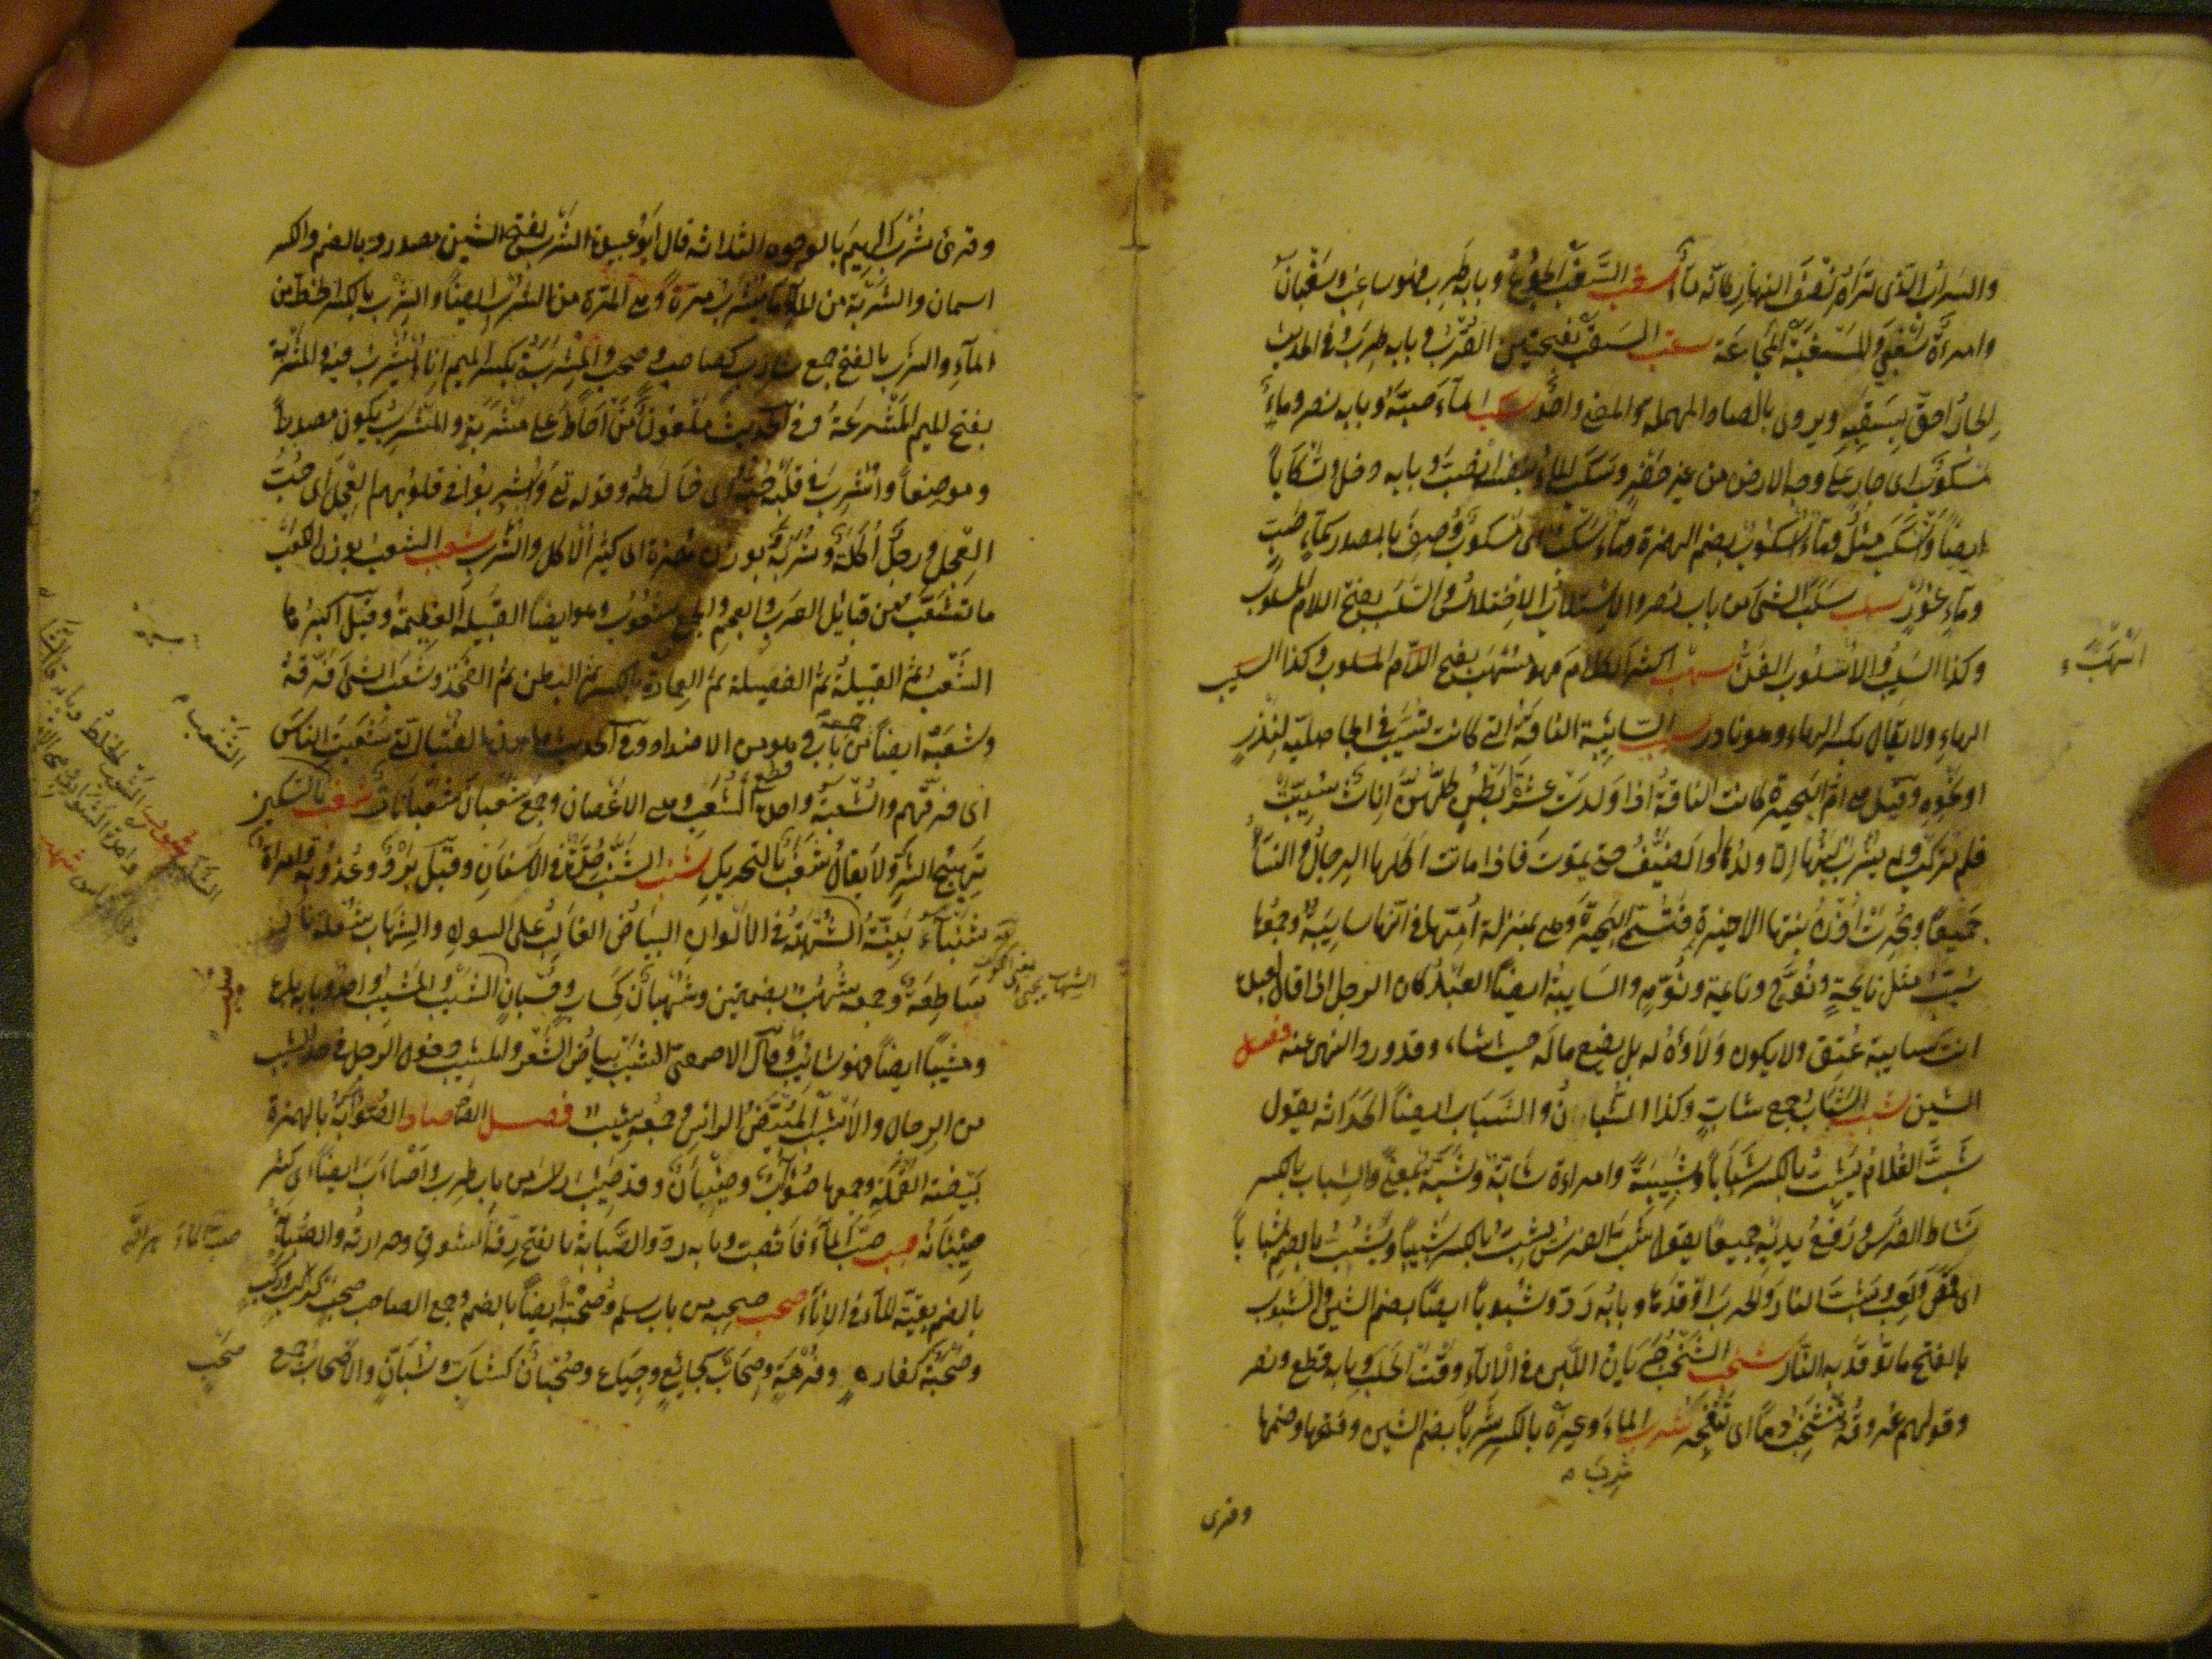 والسراب الذى تراه نصف النهار كانه ماء سغب السغب الجوع وبابه طرب فهو ساغب وسغبان
وامرأة سغبى والمسغبة المجاعة سقب السقب بفتحتين القرب وبابه طرب وفى الحديث
الجار احق بسقبه ويروى بالصاد المهملة والمعنى واحد سكب الماء صبه وبابه نصر وماء
مسكوب اى جار على وجه الارض من غير حفر وسكب الماء بنفسه انصب وبابه دخل وتسكابا
ايضا وانسكب مثله وماء اسكوب بضم الهمزة وماء سكب اى مسكوب وصف بالمصدر كماء صب
وماء غور سلب سلب الشئ من باب نصر والاستلاب الاختلاس والسلب بفتح اللام المسلوب
وكذا السليب والاسلوب الفن سهب اكثر الكلام فهو مسهب بفتح
الهاء ولا يقال بكسر الهاء وهو نادر سيب السائبة الناقة التى كانت تسيب فى الجاهلية لنذر
او نحوه وقيل هى ام البحيرة كانت الناقة اذا ولدت عشرة ابطن كلهن اناث سيبت
فلم تركب ولم يشرب لبنها الا ولدها او الضيف حتى تموت فاذا ماتت اكلها الرجال والنساء
جميعا وبحرت اذن بنتها الاخيرة فتسمى البحيرة وهى بمنزلة امها فى انها سائبة وجمعها
سيب مثل نائحة ونوح ونائمة ونوم والسايبة ايضا العبد كان الرجل اذا قال لعبده
انت سايبة عتق ولا يكون ولاؤه له بل يضع ماله حيث شاء وقد ورد النهى عنه فصل
الشين شبب الشباب جمع شاب وكذا الشبان والشباب ايضا الحداثة يقول
شب الغلام يشب بالكسر شبابا وشبيبة وامراءة شابة وشبة بمعنى والشباب بالكسر
نشاط الفرس ورفع يديه جميعا يقول شب الفرس يشب بالكسر شبيبا ويشب بالضم شبابا
اى قمص ولعب وشب النار والحرب اوقدها وبابه رد وشبوبا ايضا بضم الشين والشبوب
بالفتح ما توقد به النار شخب الشخب جريان اللبن فى الاناء وقت الحلب وبابه قطع ونصر
وقولهم عروقه تنشخب دما اى تنفجر شرب الماء وغيره بالكسر شربا بضم الشين وفتحها وضمها
شرب
وقرى
وقرئ شرب الهيم بالوجوه الثلاثه قال ابو عبيدة الشرب بفتح الشين مصدر وبالضم والكسر
اسمان والشربة من الماء ما يشرب مرة وهى المرة من الشرب ايضا والشرب بالكسر الحظ من
الماء والشرب بالفتح جمع شارب كصاحب وصحب والمشربة بكسر الميم اناء يشرب فيه والمشربة
بفتح الميم المشرعة وفى الحديث ملعون من احاط على مشربة والمشرب يكون مصدرا
وموضعا واشرب فى قلبه حبه اى خالطه وقوله تع واشربوا فى قلوبهم العجل اى حب
العجل ورجل اكلة وشربة بوزن همزة اى كثير الاكل والشرب شعب الشعب بوزن الكعب
ما تشعب من قبائل العرب والعجم والجمع شعوب وهو ايضا القبيلة العظيمة وقيل اكبرها
الشعب ثم القبيلة ثم الفصيلة ثم العمارة بالكسر ثم البطن ثم الفخذ وشعب الشئ فرقه
وشعبه ايضا جمعه من باب قطع وهو من الاضداد وفى الحديث ما هذه الفتيا التى شعبت الناس
اى فرقتهم والشعبة واحدة الشعب وهى الاغصان وجمع شعبان شعبانات شغب بالتسكين
تهييج الشر ولا يقال شغب بالتحريك شنب الشنب حدة فى الاسنان وقيل برد وعذوبة وامراة
شنباء بينة الشهبة فى الالوان البياض الغالب على السواد والشهاب شعلة نار
ساطعة وجمعه شهب بضمتين وشهبان كحساب وحسبان الشيب والمشيب واحد وبابه باع
ومشيبا ايضا فهو شائب وقال الاصمعى الشيب بياض الشعر والمشيب دخول الرجل فى حد الشيب
من الرجال والاشيب المبيض الرأس وجمعه شيب فصل الصاد الصؤابة بالهمزة
بيضة القملة وجمعها صؤاب وصئبان وقد صئب راسه من باب طرب واصأب ايضا اى كثر
صئبانه صبب صب الماء فانصب وبابه رد والصبابة بالفتح رقة الشوق وحرارته والصبابة
بالضم بقية الماء فى الاناء صحب صحبه من باب سلم وصحبة ايضا بالضم وجمع الصاحب صحب كراكب وركب
وصحبة كفاره وفرهة وصحاب كجائع وجياع وصحبان كشاب وشبان والاصحاب جمع
صحب